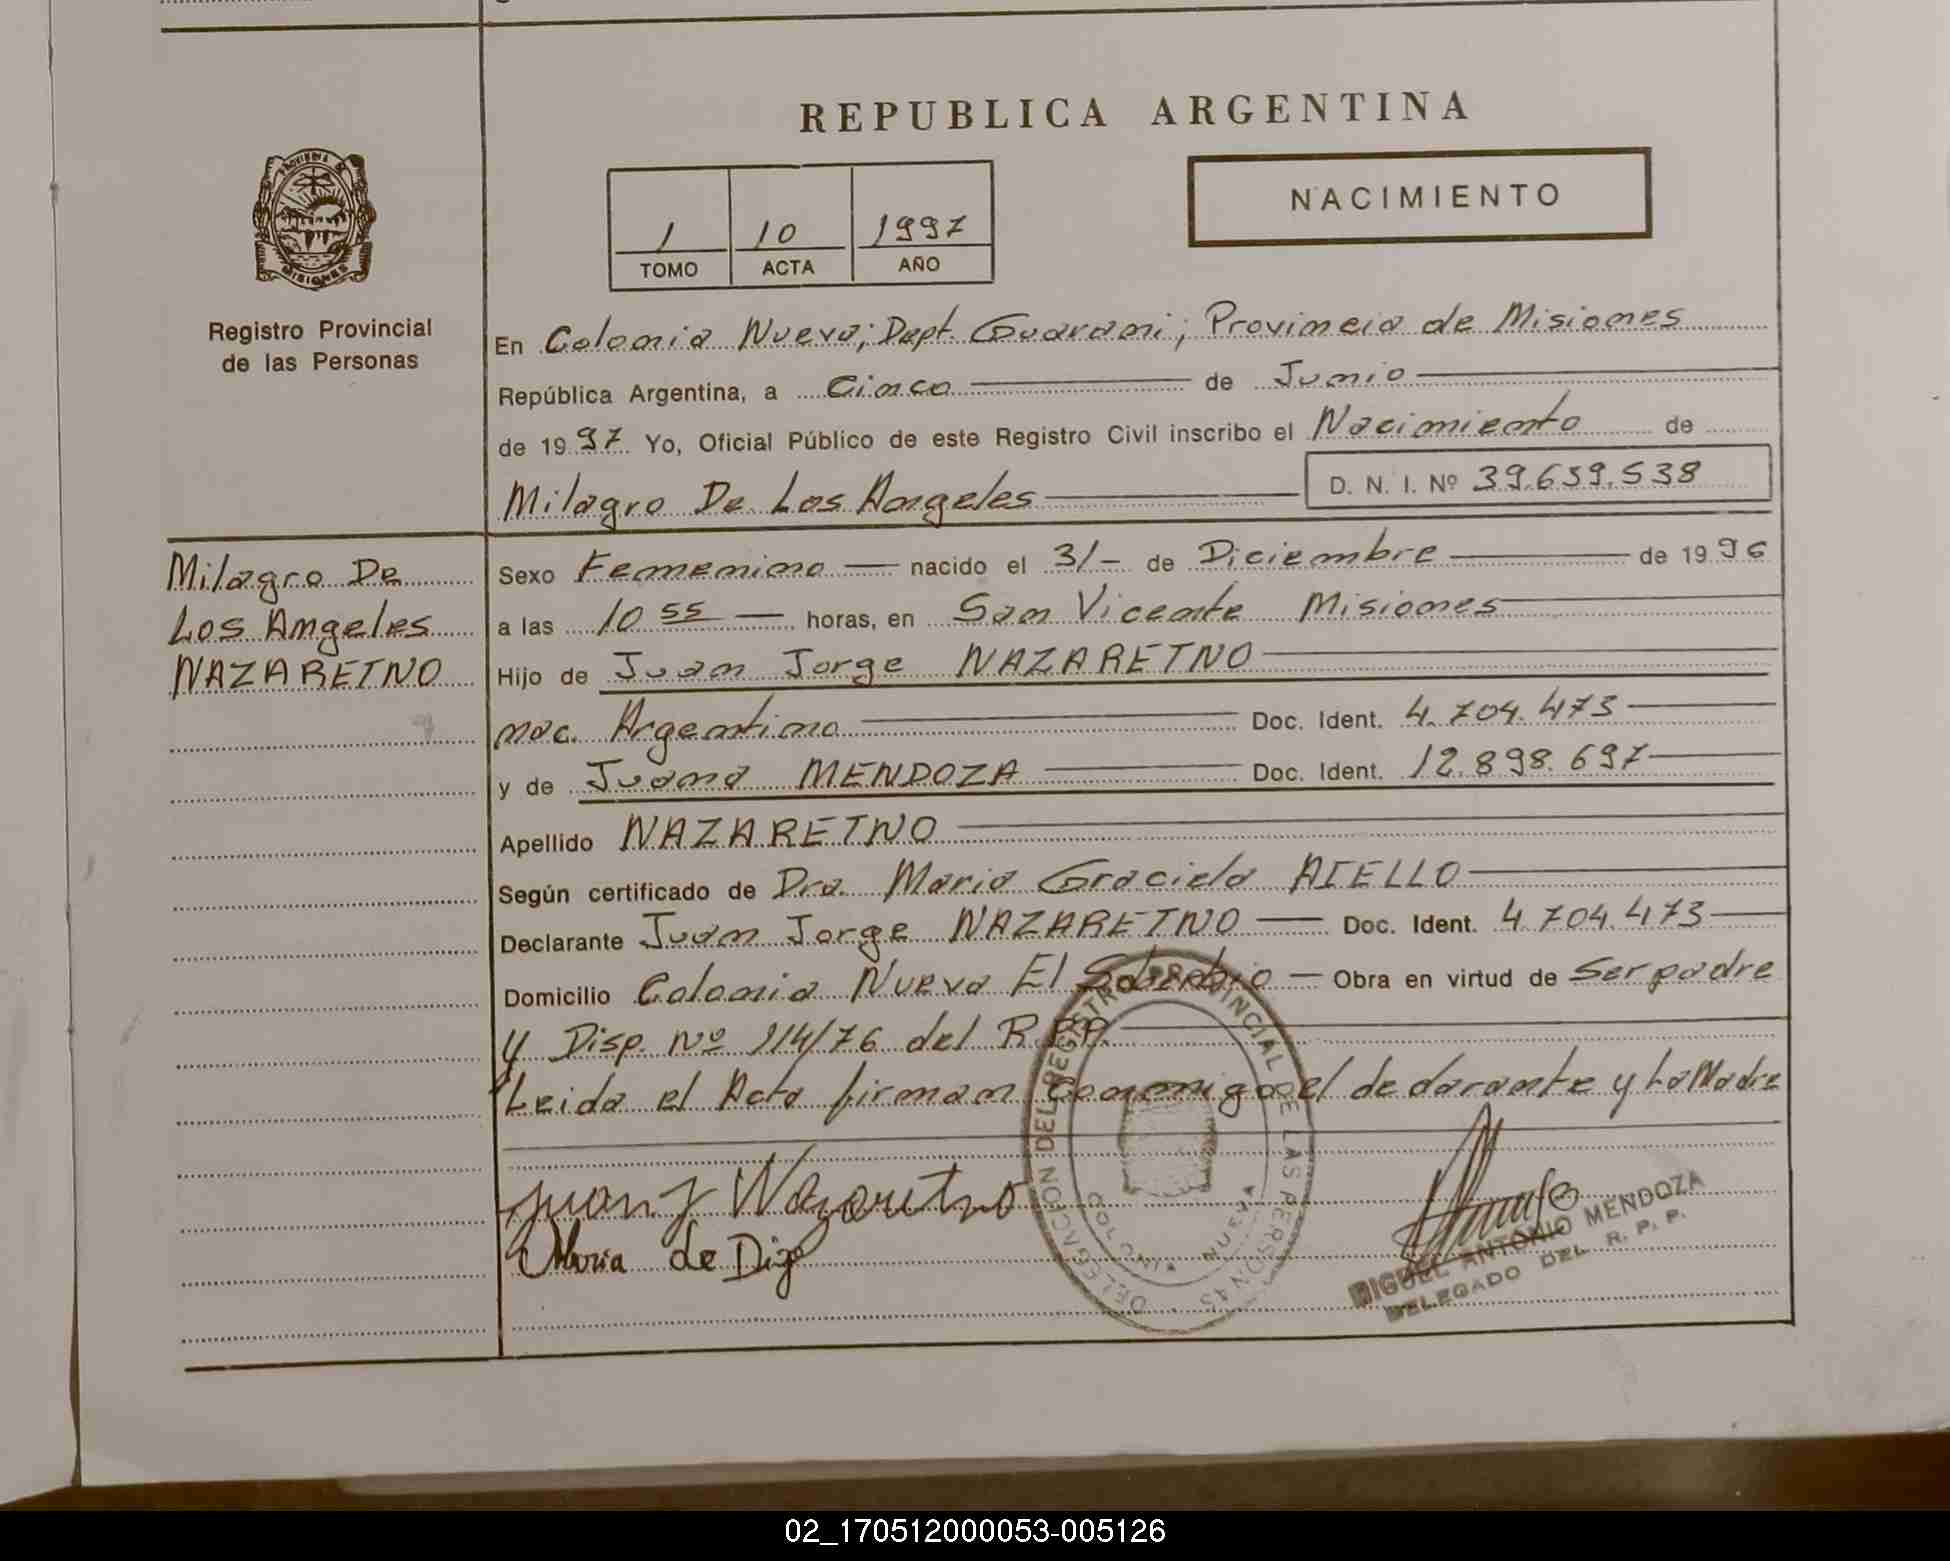 REPUBLICA ARGENTINA
PROVINCIA DE
MISIONES
Registro Provincial
de las Personas
1 10 1997
TOMO ACTA AÑO
NACIMIENTO
En Colonia Nueva; Dept. Guarani; Provincia de Misiones
República Argentina, a Cinco de Junio
de 1997 Yo, Oficial Público de este Registro Civil inscribo el Nacimiento de
Milagro De Los Angeles D. N. I. Nº 39.659.538
Milagro De
Los Angeles
NAZARETNO
Sexo Femenino nacido el 31- de Diciembre de 1996
a las 10 55 horas, en San Vicente Misiones
Hijo de Juan Jorge NAZARETNO
nac. Argentino Doc. Ident. 4.704.473
y de Juana MENDOZA Doc. Ident. 12.898.697
Apellido NAZARETNO
Según certificado de Dra. Maria Graciela AIELLO
Declarante Juan Jorge NAZARETNO Doc. Ident. 4.704.473
Domicilio Colonia Nueva El Soberbio Obra en virtud de Ser padre
y Disp. Nº 114/76 del R.P.P.
Leida el Acta firman Conmigo el declarante y La Madre
Juan J Nazaretno
Maria de
DELEGACION DEL REGISTRO PROVINCIAL DE LAS PERSONAS
COLONIA NUEVA
MIGUEL ANTONIO MENDOZA
DELEGADO DEL R. P. P.
02_170512000053-005126